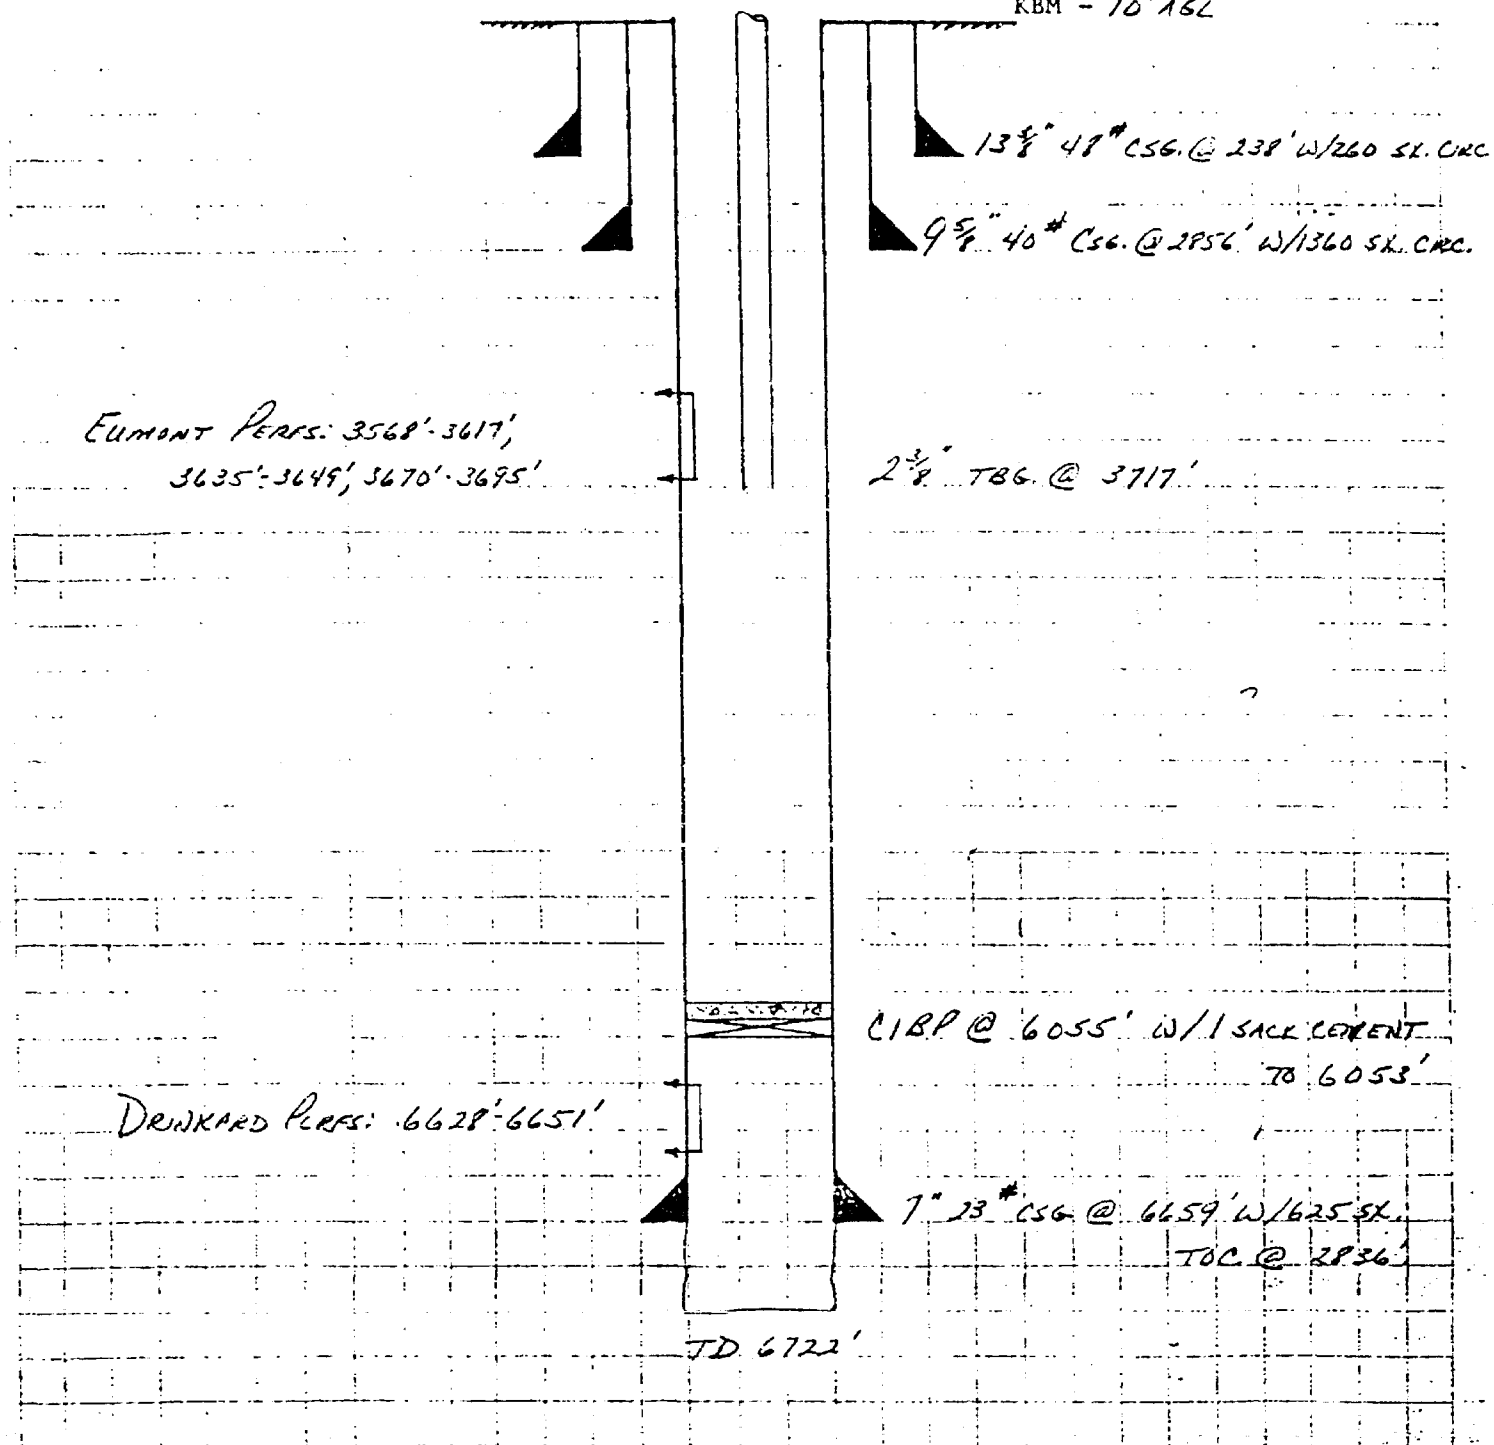 KBM - 10' AGL
13 3/8" 48# CSG. @ 238' W/260 SX. CIRC
9 5/8" 40# CSG. @ 2856' W/1360 SX. CIRC.
EUMONT PERFS: 3568'-3617',
3635'-3649', 3670'-3695'
2 3/8" TBG. @ 3717'
CIBP @ 6055' W/1 SACK CEMENT
TO 6053'
DRINKARD PERFS: 6628'-6651'
7" 23# CSG @ 6659' W/625 SX.
TOC @ 2836'
TD 6722'